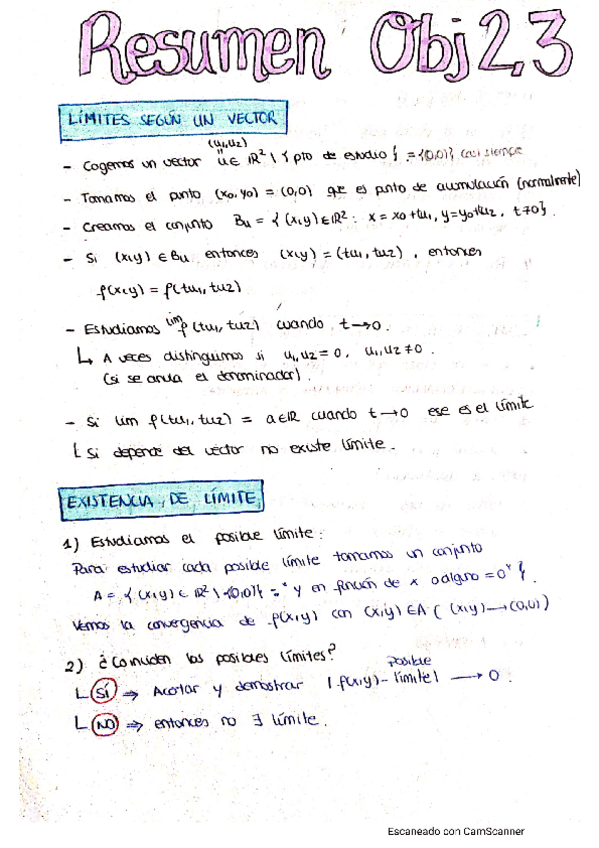 Resumen Obj 2,3
LÍMITES SEGÚN UN VECTOR
(u1,u2)
- Cogemos un vector u ∈ ℝ² \ { pto de estudio } = {(0,0)} casi siempre
- Tomamos el punto (x0,y0) = (0,0) que es punto de acumulación (normalmente)
- Creamos el conjunto Bu = { (x,y) ∈ ℝ² : x = x0 + tu1, y = y0 + tu2, t≠0}.
- Si (x,y) ∈ Bu entonces (x,y) = (tu1, tu2), entonces
f(x,y) = f(tu1, tu2)
- Estudiamos lim f(tu1, tu2) cuando t→0.
↳ A veces distinguimos si u1,u2 = 0, u1,u2 ≠ 0.
(si se anula el denominador).
- Si lim f(tu1, tu2) = a ∈ ℝ cuando t→0 ese es el límite
L Si depende del vector no existe límite.
EXISTENCIA DE LÍMITE
1) Estudiamos el posible límite:
Para estudiar cada posible límite tomamos un conjunto
A = { (x,y) ∈ ℝ² \ {(0,0)} : " y en función de x o alguno = 0" }.
Vemos la convergencia de f(x,y) con (x,y) ∈ A ( (x,y) → (0,0) )
2) ¿Coinciden los posibles límites?
posible
L SÍ ⇒ Acotar y demostrar | f(x,y) - límite | → 0.
L NO ⇒ entonces no ∃ límite.
Escaneado con CamScanner